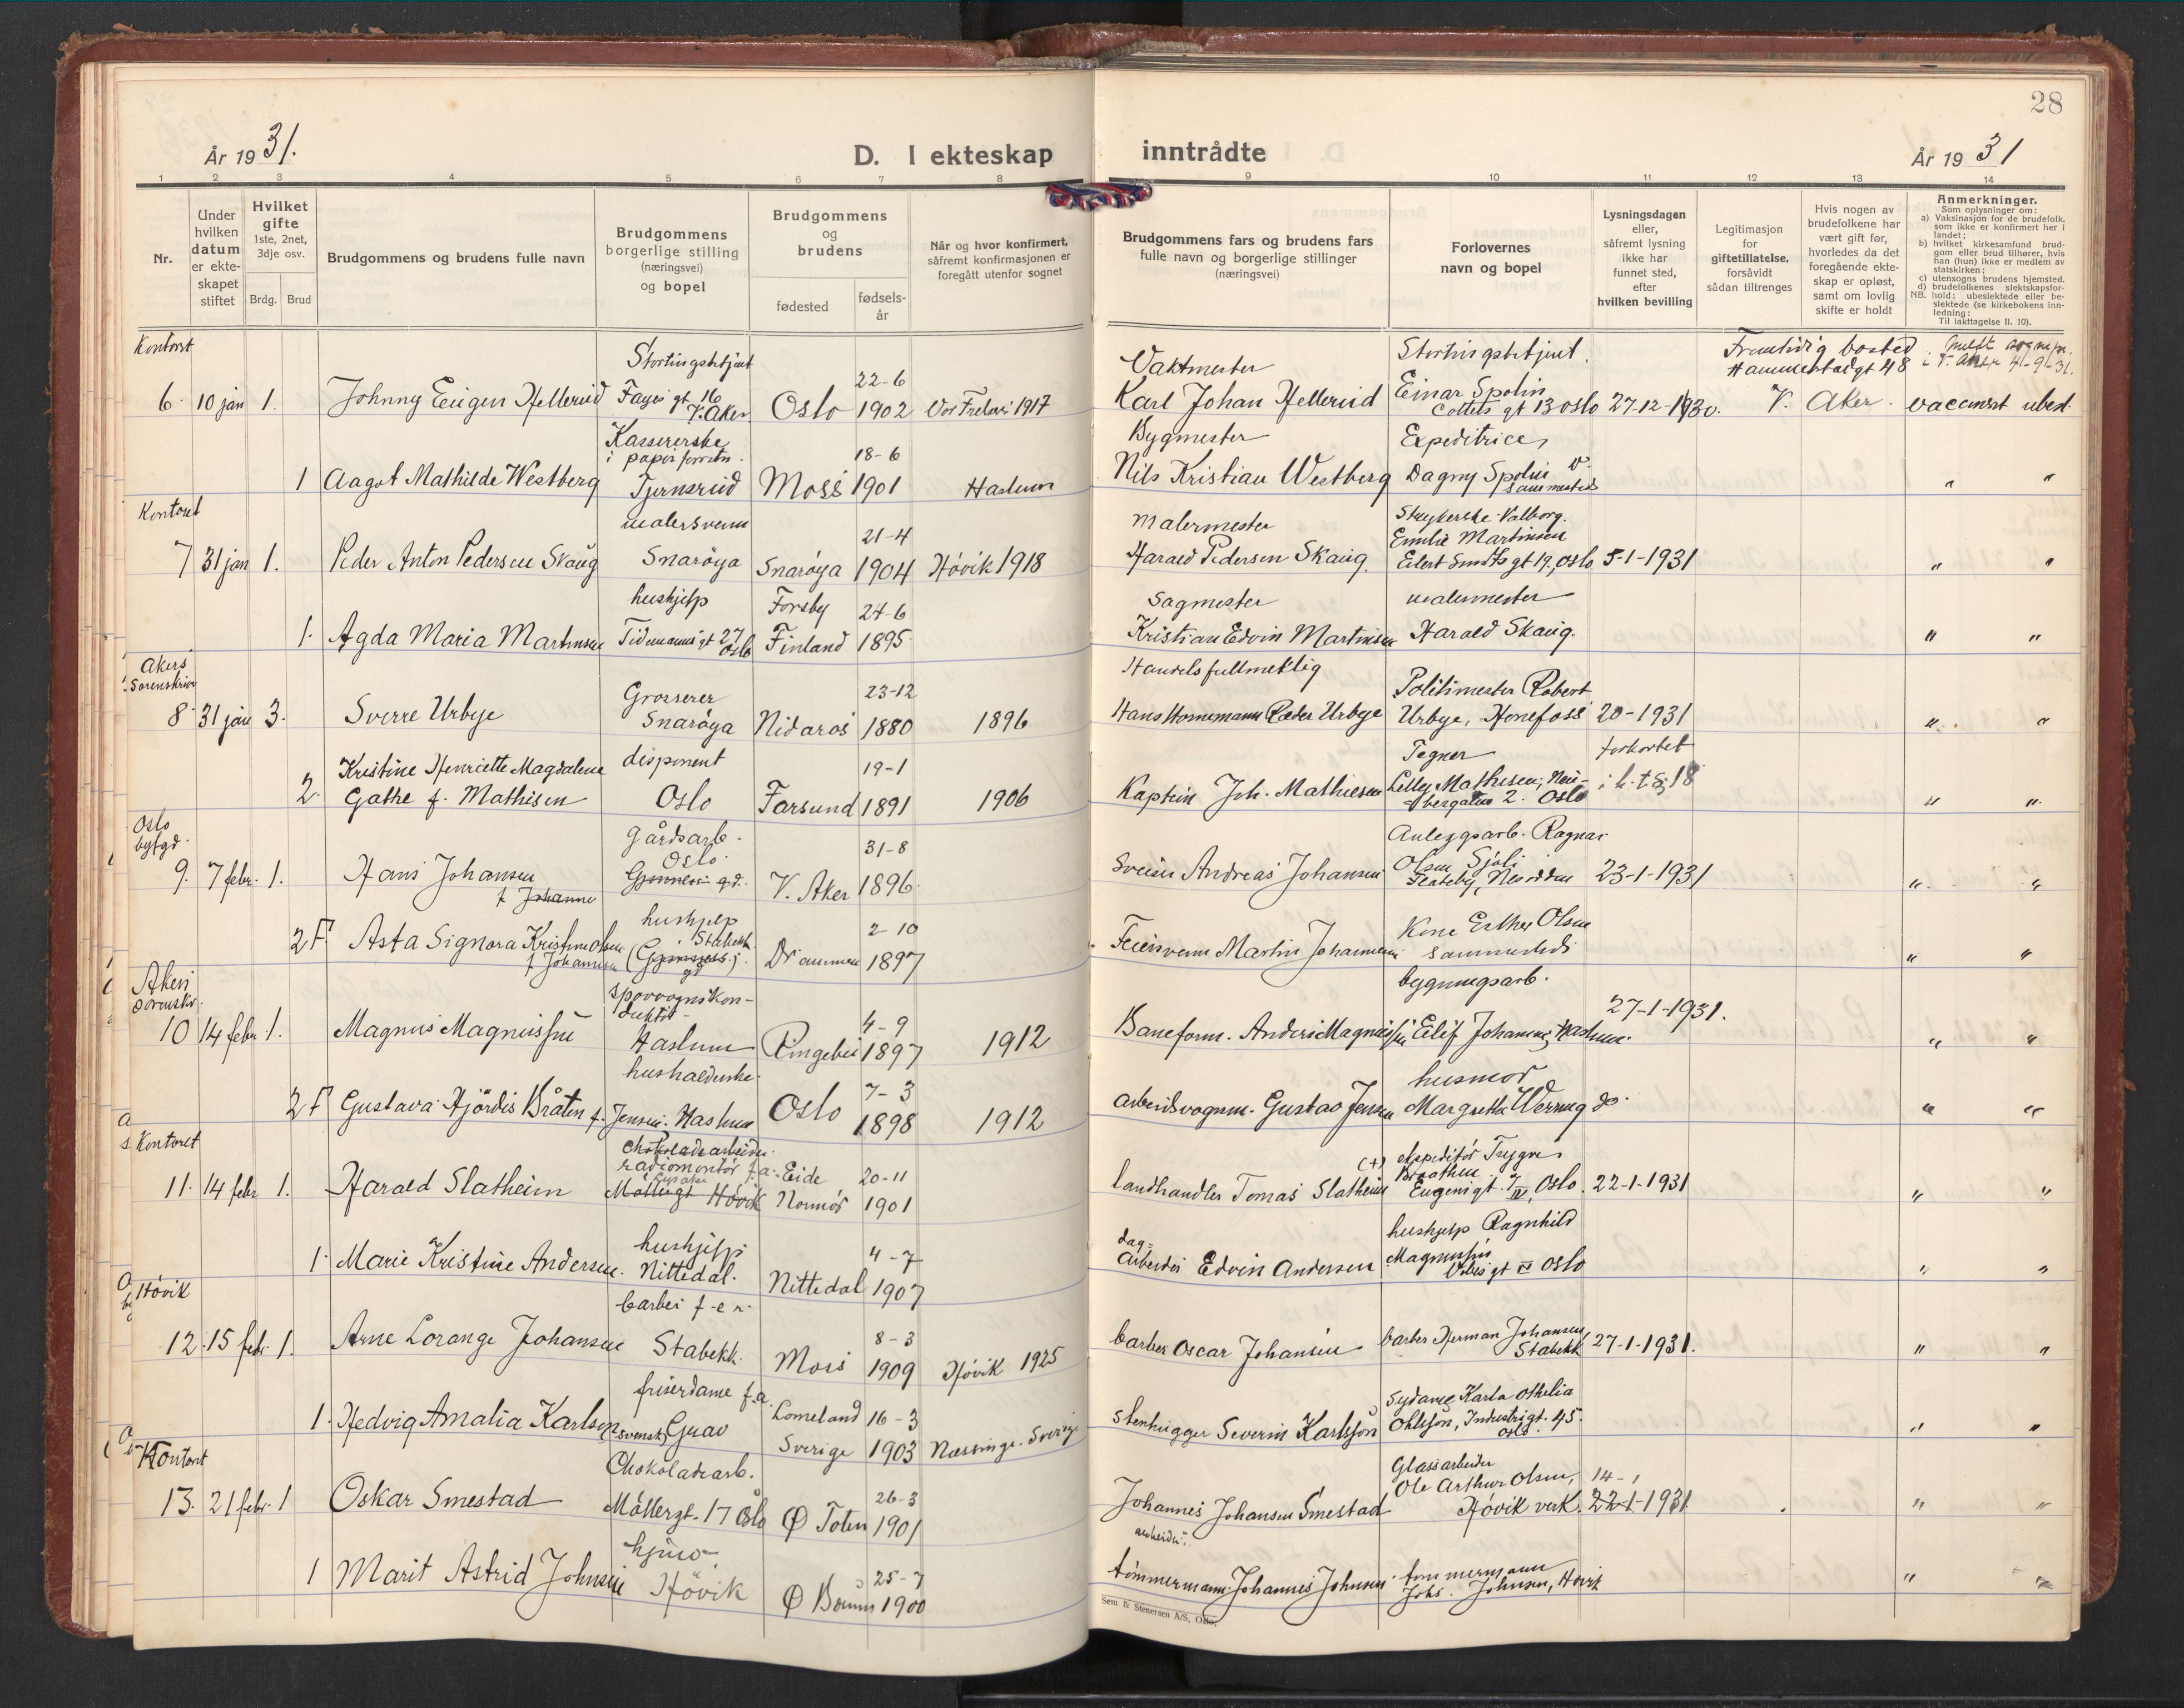 28
År 1931.
D. I ekteskap
inntrådte
År 1931
1 2 3 4 5 6 7 8 9 10 11 12 13 14
Nr.
Under hvilken datum er ekteskapet stiftet
Hvilket gifte
1ste, 2net, 3dje osv.
Brdg. Brud
Brudgommens og brudens fulle navn
Brudgommens borgerlige stilling (næringsvei) og bopel
Brudgommens og brudens
fødested
fødselsår
Når og hvor konfirmert, såfremt konfirmasjonen er foregått utenfor sognet
Brudgommens fars og brudens fars fulle navn og borgerlige stillinger (næringsvei)
Forlovernes navn og bopel
Lysningsdagen eller, såfremt lysning ikke har funnet sted, efter hvilken bevilling
Legitimasjon for giftetillatelse, forsåvidt sådan tiltrenges
Hvis nogen av brudefolkene har vært gift før, hvorledes da det foregående ekteskap er opløst, samt om lovlig skifte er holdt
Anmerkninger.
Som oplysninger om:
a) Vaksinasjon for de brudefolk, som ikke er konfirmert her i landet;
b) hvilket kirkesamfund brudgom eller brud tilhører, hvis han (hun) ikke er medlem av statskirken;
c) utensogns brudens hjemsted.
d) brudefolkenes slektskapsforhold: ubeslektede eller beslektede (se kirkebokens innledning:
NB.
Til iakttagelse II. 10).
Kontoret
Stortingsbetjent
22-6
Vaktmester
Stortingsbetjent.
Fremtidig bosted
Meldt sognepr.
Hammerstadgt 48
i V. Aker 4-9-31.
6. 10 jan 1. Johnny Eugen Hellerud Fayes gt 16 V. Aker Oslo 1902 Vor Frelser 1917
Karl Johan Hellerud Einar Spolin Colletts gt 13 Oslo 27-12-1930. V. Aker. vaccinert ubesl.
Kassererske i papirforretn. 18-6
Bygmester Expeditrice,
1 Aagot Mathilde Westberg Tjernsrud Moss 1901 Haslum
Nils Kristian Westberg Dagny Spolin sammesteds " "
Kontoret
malersvenn 21-4
malermester Strykerske Valborg Emilie Martinsen
7 31 jan 1. Peder Anton Pedersen Skaug Snarøya Snarøya 1904 Høvik 1918
Harald Pedersen Skaug. Eilert Sundts gt 19, Oslo 5-1-1931 " "
hushjelp Forsby 24-6
Sagmester malermester
1. Agda Maria Martinsen Tidemannsgt 27 Oslo Finland 1895
Kristian Edvin Martinsen Harald Skaug. " "
Akers Sorenskriver
Grosserer 23-12
Handelsfullmektig Politimester Robert
8. 31 jan 3. Sverre Urbye Snarøya Nidaros 1880 1896
Hans Hornemann Ræder Urbye Urbye, Hønefoss 20-1931 " "
Kristine Henriette Magdalene disponent 19-1
Tegner forkortet
2. Gathe f. Mathisen Oslo Farsund 1891 1906
Kaptein Joh. Mathiesen Lilly Mathiesen, Neubergatan 2. Oslo i h. t § 18 " "
Oslo byfgd.
Gårdsarb. Oslo 31-8
Anleggsarb. Ragnar
9. 7 febr. 1. Hans Johansen V. Aker 1896
Sveiser Andreas Johansen Olsen Sjøli Nesodden 23-1-1931 " "
hushjelp Stabekk 2-10
Kone Esther Olsen
2 F Asta Signora Kristine Olsen f. Johannesen Drammen 1897
Feiersvenn Martin Johannesen sammesteds " "
Akers sorenskr.
sporvognskonduktør 4-9
bygningsarb. 27-1-1931.
10 14 febr 1. Magnus Magnussen Haslum Ringebu 1897 1912
Baneform. Anders Magnussen Eilif Johansen, Haslum. " "
husholderske 7-3
husmor
2 F Gustava Hjördis Bråten f. Jensen. Haslum Oslo 1898 1912
arbeidsvognm. Gustav Jensen Margrethe Werring do. " "
Kontoret
Chokoladearbeider radiomontør f.a. Eide 20-11
(+) ekspeditør Trygve Braathen
11. 14 febr 1. Harald Slatheim Møllergt Høvik Normør 1901
landhandler Tomas Slatheim Eugenigt. 7 IV, Oslo. 22-1-1931 " "
hushjelp 4-7
dag- hushjelp Ragnhild
1. Marie Kristine Andersen. Nittedal. Nittedal 1907
arbeider Edvin Andersen Magnussen gt IV Oslo " "
Høvik
barber f-e n. 8-3
12. 15 febr. 1. Arne Lorange Johansen Stabekk. Moss 1909 Høvik 1925
barber Oscar Johansen barber Herman Johansen, Stabekk 27-1-1931. " "
friserdame f.a. Lomeland 16-3
Sydame Karla Othelia
1. Hedvig Amalia Karlsen (svensk) Grav Sverige 1903 Næssinge. Sverige
Stenhugger Severin Karlsson Ohlsson, Industrigt. 45. Oslo " "
Kontoret
Chokoladearb. 26-3
Glassarbeider Ole Arthur Olsen, 14-1
13. 21 febr. 1 Oskar Smestad Møllergt. 17 Oslo Ø Toten 1901
Johannes Johansen Smestad Høvik verk. 22-1-1931 " "
arbeider.
hjmv. 25-7
1 Marit Astrid Johnsen Høvik Ø Bærum 1900
tömmermann Johannes Johnsen tømmermann Johs. Johnsen, Høvik " "
Sem & Stenersen A/S, Oslo.